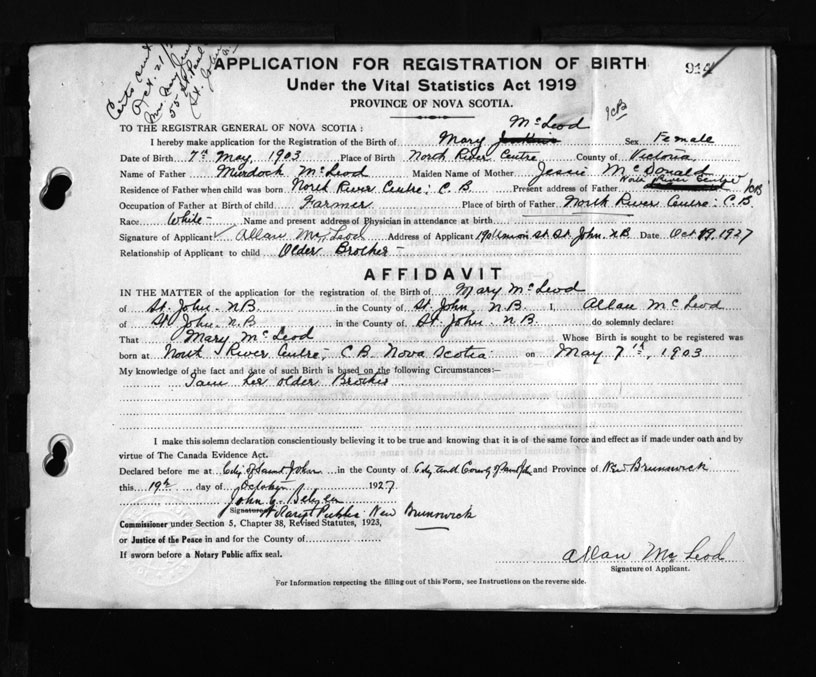 Oct. 21/
APPLICATION FOR REGISTRATION OF BIRTH
914
Under the Vital Statistics Act 1919
PROVINCE OF NOVA SCOTIA.
McLeod
TO THE REGISTRAR GENERAL OF NOVA SCOTIA:
I hereby make application for the Registration of the Birth of Mary Sex Female
Date of Birth 7th May, 1903 Place of Birth North River Centre County of Victoria
Name of Father Murdock McLeod Maiden Name of Mother Jessie McDonald
North River Centre
Residence of Father when child was born North River Centre: C.B. Present address of Father CB
Occupation of Father at Birth of child Farmer Place of birth of Father North River Centre: C.B.
Race White Name and present address of Physician in attendance at birth
Signature of Applicant Allan McLeod Address of Applicant Union St. St. John N.B. Date Oct 19, 1927
Relationship of Applicant to child Older Brother
AFFIDAVIT
IN THE MATTER of the application for the registration of the Birth of Mary McLeod
of St. John - N.B in the County of St. John N.B. I, Allan McLeod
of St. John - N.B in the County of St. John - N.B. do solemnly declare:
That Mary McLeod Whose Birth is sought to be registered was
born at North River Centre, C.B. Nova Scotia on May 7th, 1903
My knowledge of the fact and date of such Birth is based on the following Circumstances:—
I am her older Brother
I make this solemn declaration conscientiously believing it to be true and knowing that it is of the same force and effect as if made under oath and by
virtue of The Canada Evidence Act.
Declared before me at City of Saint John in the County of City and County of Saint John and Province of New Brunswick
this 19th day of October 1927.
John
Signature A Notary Public New Brunswick
Commissioner under Section 5, Chapter 38, Revised Statutes, 1923,
or Justice of the Peace in and for the County of
If sworn before a Notary Public affix seal.
Allan McLeod
Signature of Applicant.
For Information respecting the filling out of this Form, see Instructions on the reverse side.